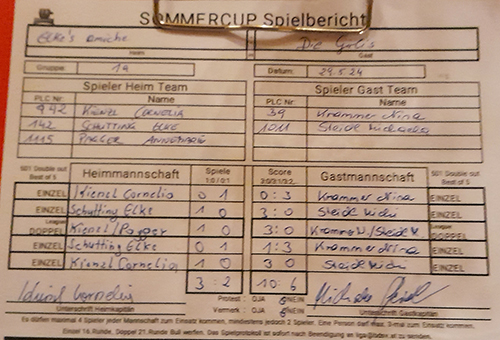 SOMMERCUP Spielbericht
Elke's amiche Die Gol's
Heim Gast
Gruppe: 1a Datum: 29.5.24
Spieler Heim Team Spieler Gast Team
PLC Nr. Name PLC Nr. Name
942 Kienzl Cornelia 39 Krammer Nina
142 Schutting Elke 1011 Steidl Michaela
1115 Annemarie
501 Double out Best of 5 Heimmannschaft Spiele 1:0 / 0:1 Score 3:0/3:1/3:2 Gastmannschaft 501 Double out Best of 5
EINZEL Kienzl Cornelia 0 1 0:3 Krammer Nina EINZEL
EINZEL Schutting Elke 1 0 3:0 Steidl Michi EINZEL
League DOPPEL Kienzl/ 1 0 3:0 Krammer N./Steidl M. League DOPPEL
EINZEL Schutting Elke 0 1 1:3 Krammer Nina EINZEL
EINZEL Kienzl Cornelia 1 0 3 0 Steidl Michi EINZEL
3:2 10:6
Protest: OJA NEIN
Vermerk: OJA NEIN
Unterschrift Heimkapitän Unterschrift Gastkapitän
Es dürfen maximal 4 Spieler jeder Mannschaft zum Einsatz kommen, mindestens jedoch 2 Spieler. Eine Person darf max. 3-mal zum Einsatz kommen.
Einzel 16.Runde, Doppel 21.Runde Bull werfen. Das Spielprotokoll ist sofort nach Beendigung an